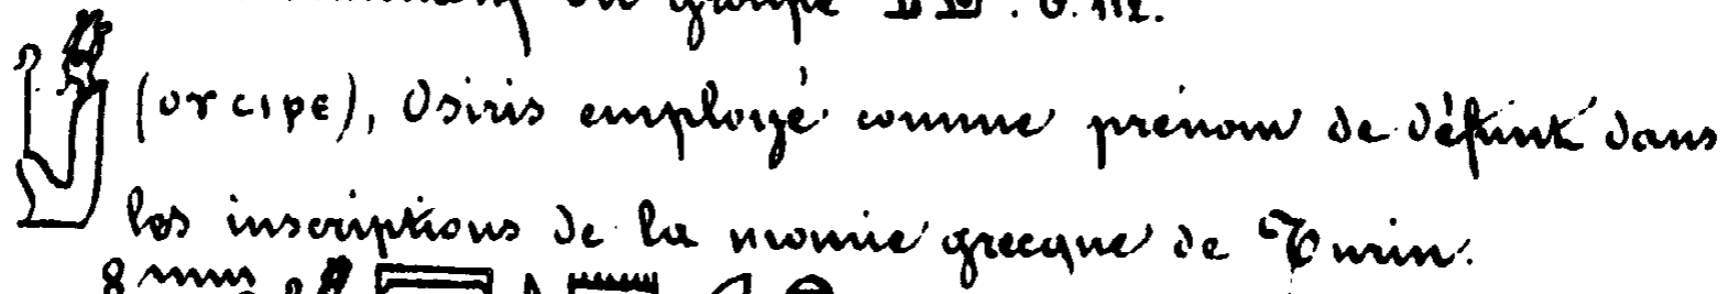 du groupe
(ⲟⲩⲥⲓⲣⲉ), Osiris employé comme prénom de défunt dans
les inscriptions de la momie grecque de Turin.